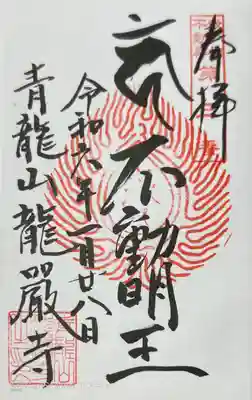 奉拝
不動明王
令和六年一月廿八日
青龍山龍嚴寺